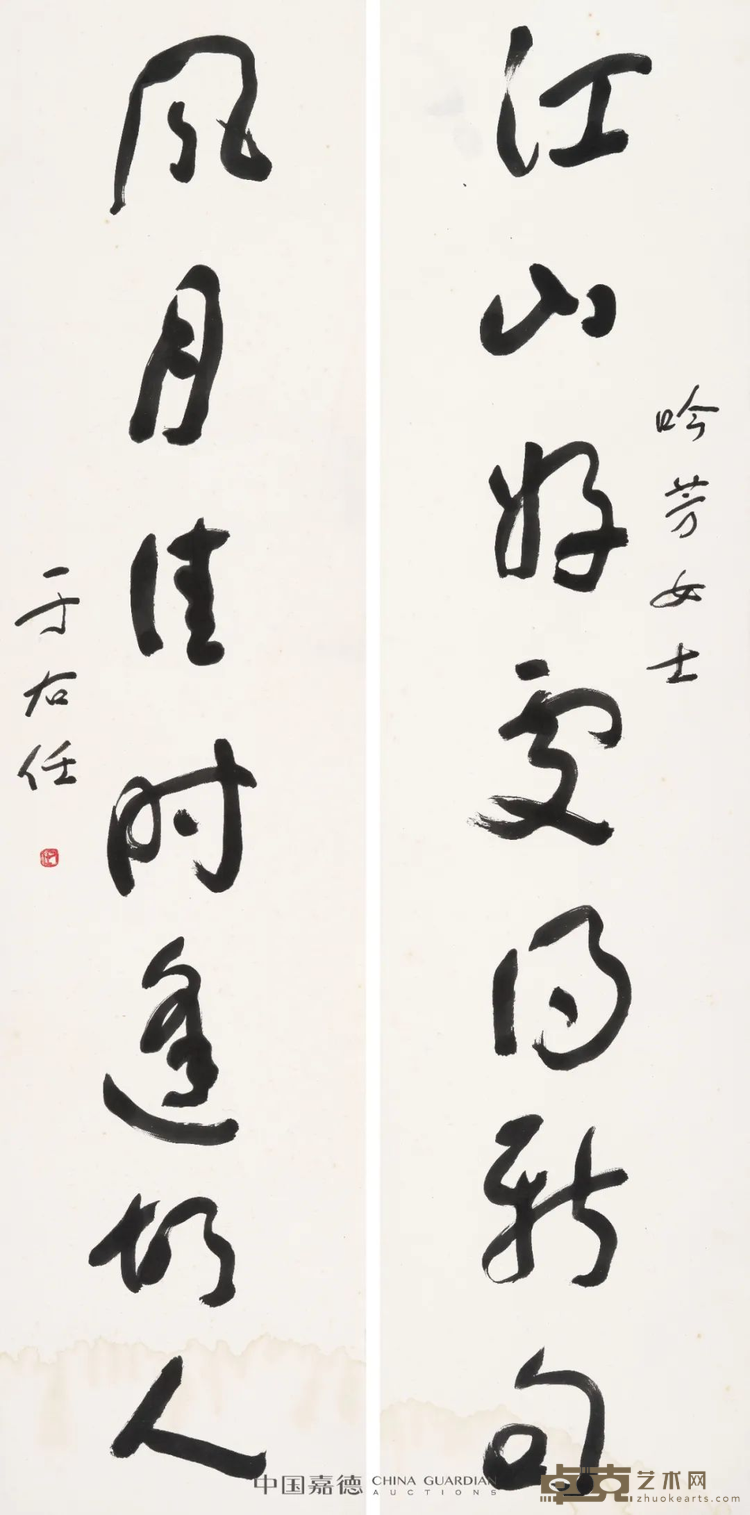 江山好处得新句
吟芳女士
风月佳时逢故人
于右任
中国嘉德 CHINA GUARDIAN
AUCTIONS
卓克艺术网
zhuokearts.com